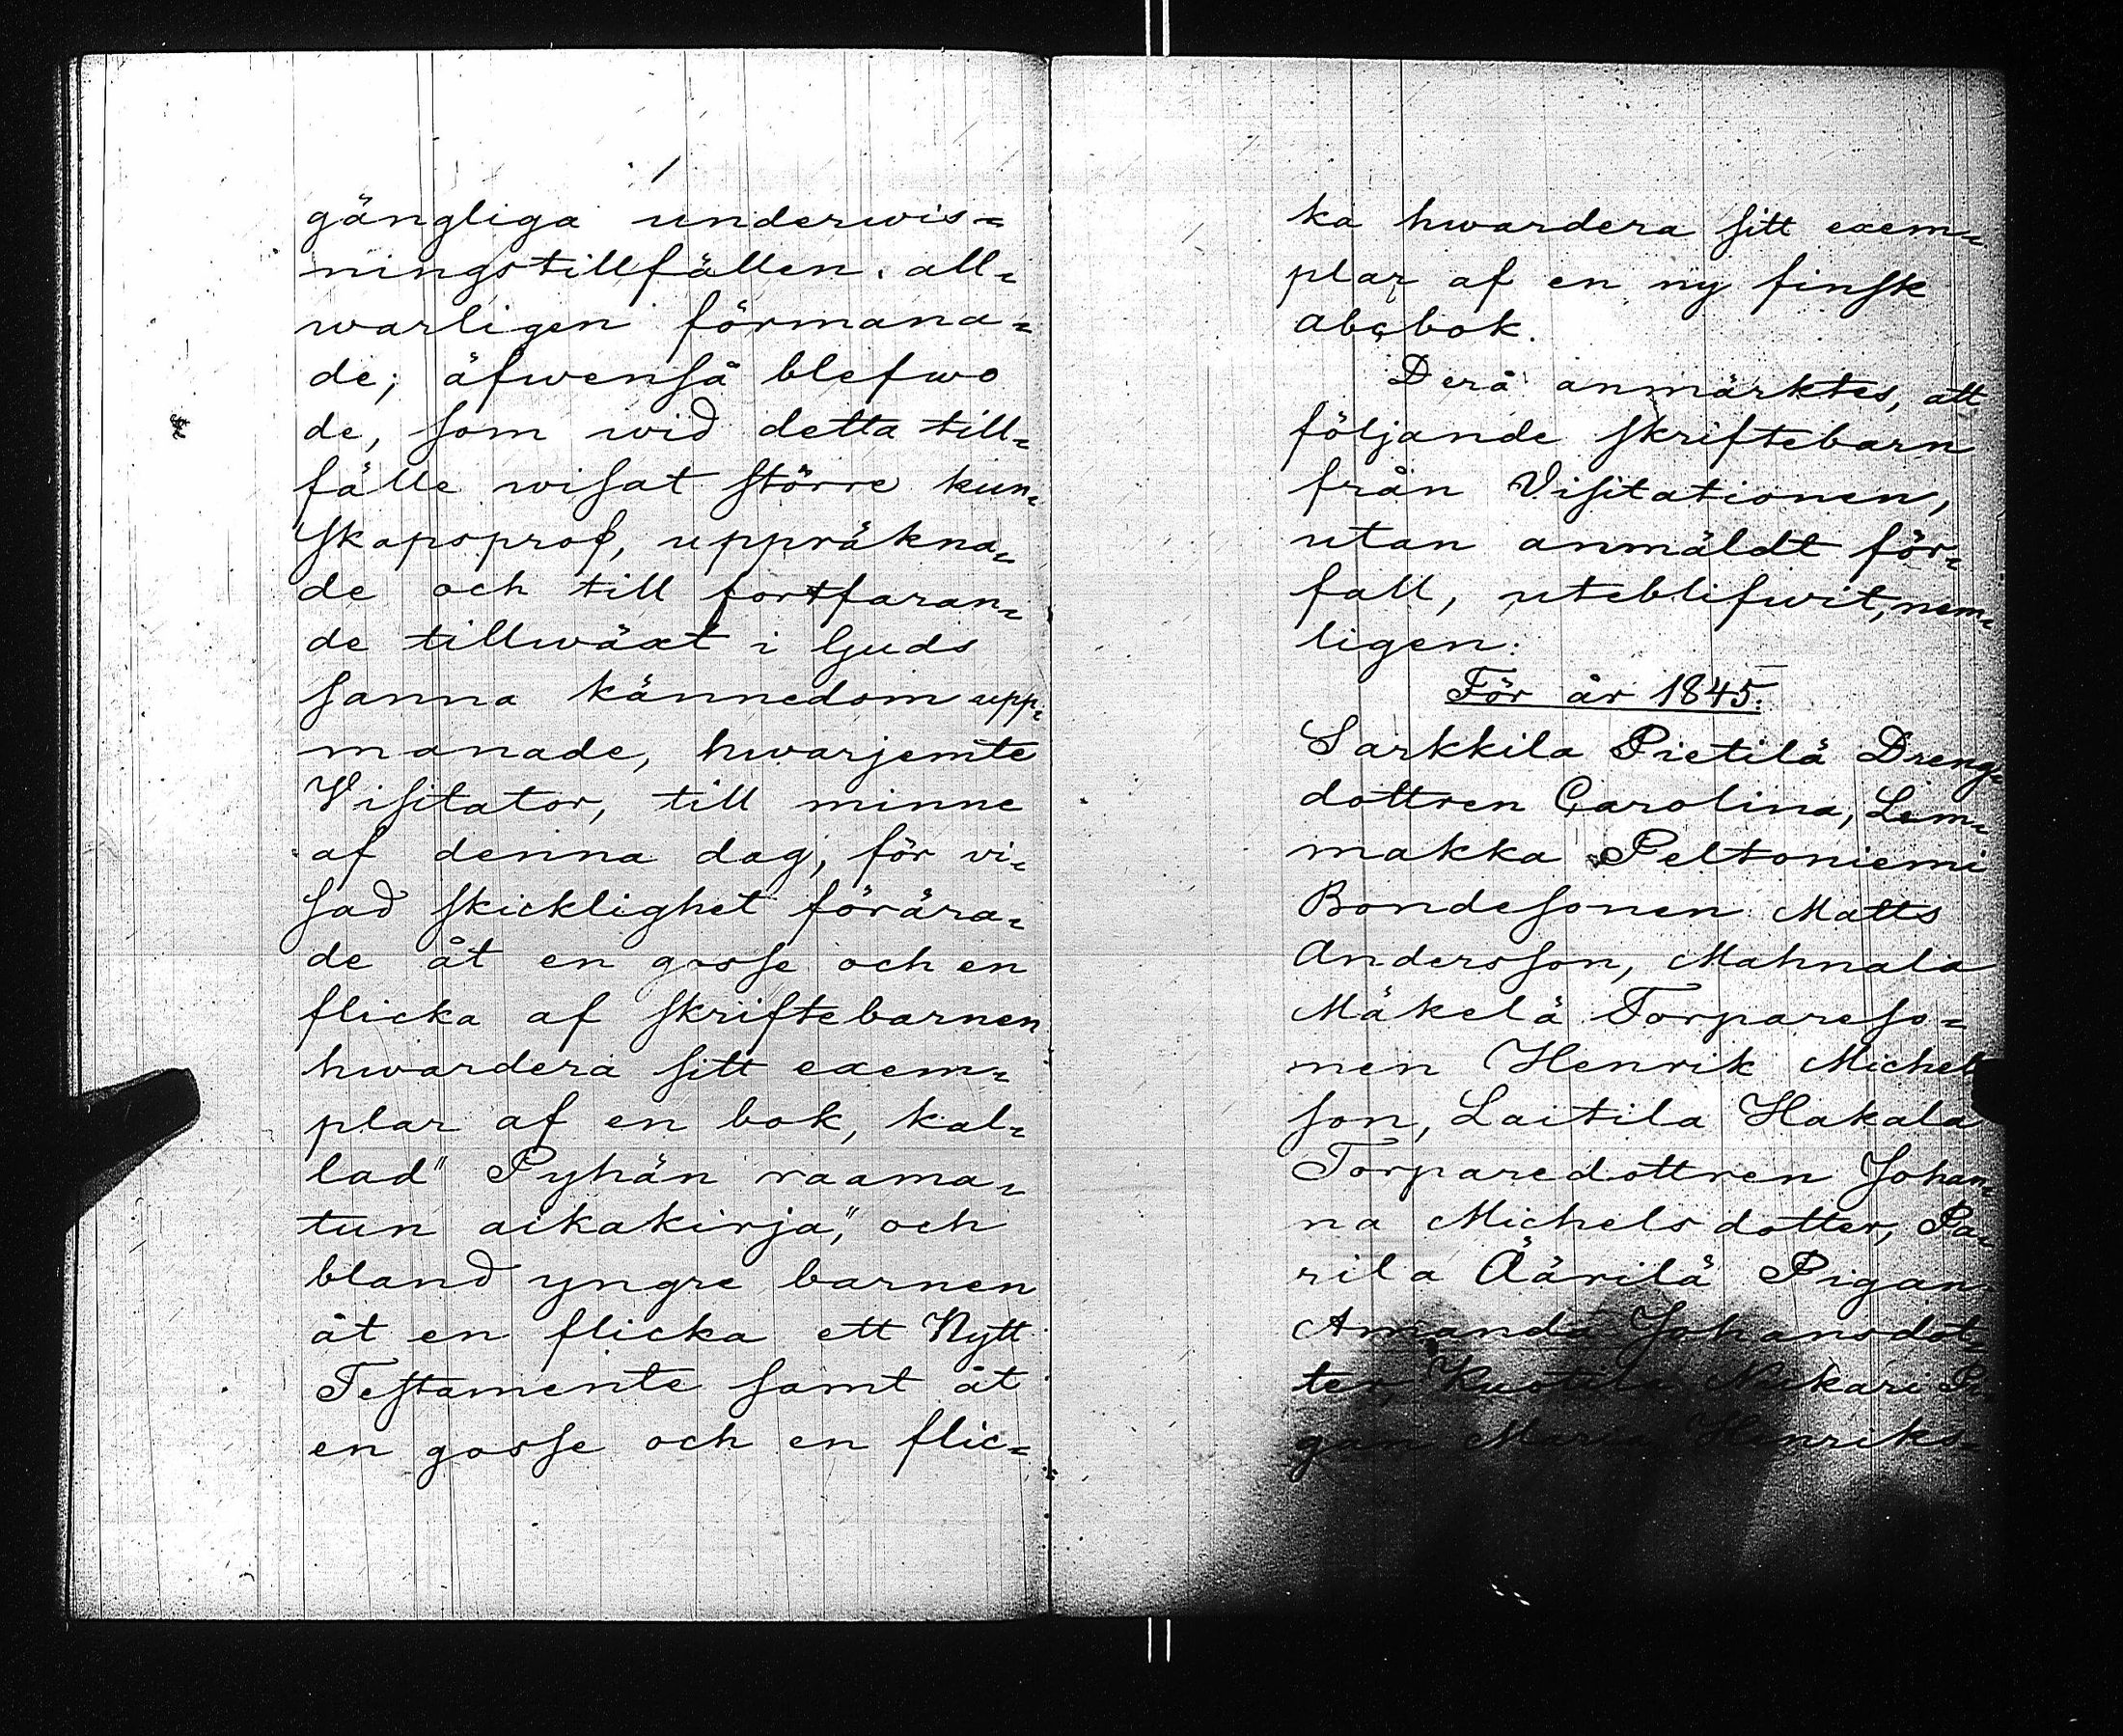 gängliga underwis=
ningstillfällen, all=
warligen förmana=
de; äfwenså blefwo
de, som wid detta till=
fälle wisat större kun=
skapsprof, uppräkna=
de och till fortfaran=
de tillwäxt i Guds
sanna kännedom upp=
manade, hwarjemte
Visitator, till minne
af denna dag, för vi=
sad skicklighet förära=
de åt en gosse och en
flicka af skriftebarnen
hwardera sitt exem=
plar af en bok, kal=
lad "Pyhän raama=
tun aikakirja", och
bland yngre barnen
åt en flicka ett Nytt
Testamente samt åt
en gosse och en flic=
ka hwardera sitt exem=
plar af en ny finsk
abcbok.
Derå anmärktes, att
följande skriftebarn
från Visitationen,
utan anmäldt för=
fall, uteblifwit, nem=
ligen:
För år 1845.
Sarkkila Pietilä Dreng=
dottren Carolina, Lem=
makka Peltoniemi
Bondesonen Matts
Andersson, Mahnala
Mäkelä Torpareso=
nen Henrik Michels
son, Laitila Hakala
Torparedottren Johan=
na Michelsdotter, Pa=
rila Äärilä Pigan
Amanda Johansdot=
ter, Kuotila Nikari Pi=
gan Maria Henriks=